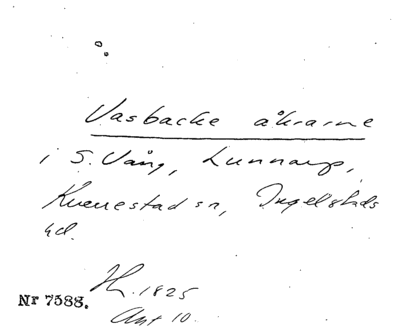 Vasbacke åkrarne
i S. Vång, Lunnarp,
Kverrestad sn, Ingelstads
hd.
H. 1825
Nr 7588.
Akt 10.